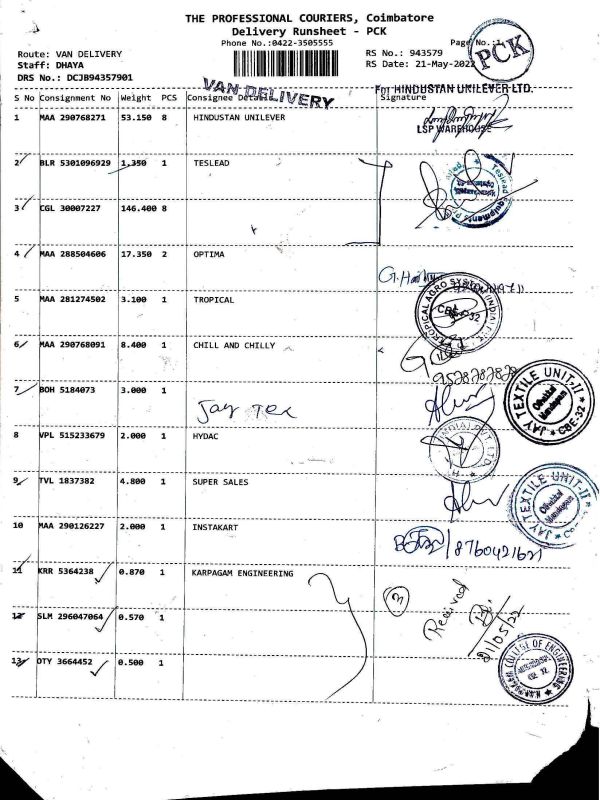 THE PROFESSIONAL COURIERS, Coimbatore
Delivery Runsheet - PCK
Phone No.:0422-3505555
Page No.:1
PCK
Route: VAN DELIVERY
Staff: DHAYA
DRS No.: DCJB94357901
RS No.: 943579
RS Date: 21-May-2022
VAN DELIVERY
For HINDUSTAN UNILEVER LTD.
S No Consignment No Weight PCS Consignee Details Signature
1 MAA 290768271 53.150 8 HINDUSTAN UNILEVER
LSP WAREHOUSE
2 BLR 5301096929 1.350 1 TESLEAD
Teslead Equipments
3 CGL 30007227 146.400 8
4 MAA 288504606 17.350 2 OPTIMA
5 MAA 281274502 3.100 1 TROPICAL
TROPICAL AGRO SYSTEM INDIA
6 MAA 290768091 8.400 1 CHILL AND CHILLY
9528282828
7 BOH 5184073 3.000 1
Jay Tex
JAY TEXTILE UNIT-II CBE-32
8 VPL 515233679 2.000 1 HYDAC
9 TVL 1837382 4.800 1 SUPER SALES
JAY TEXTILE UNIT-II
10 MAA 290126227 2.000 1 INSTAKART
8760421621
11 KRR 5364238 0.870 1 KARPAGAM ENGINEERING
3
Received
21/05/22
12 SLM 296047064 0.570 1
13 OTY 3664452 0.500 1
KARPAGAM COLLEGE OF ENGINEERING